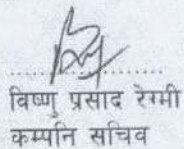 विष्णु प्रसाद रेग्मी
कम्पनि सचिव